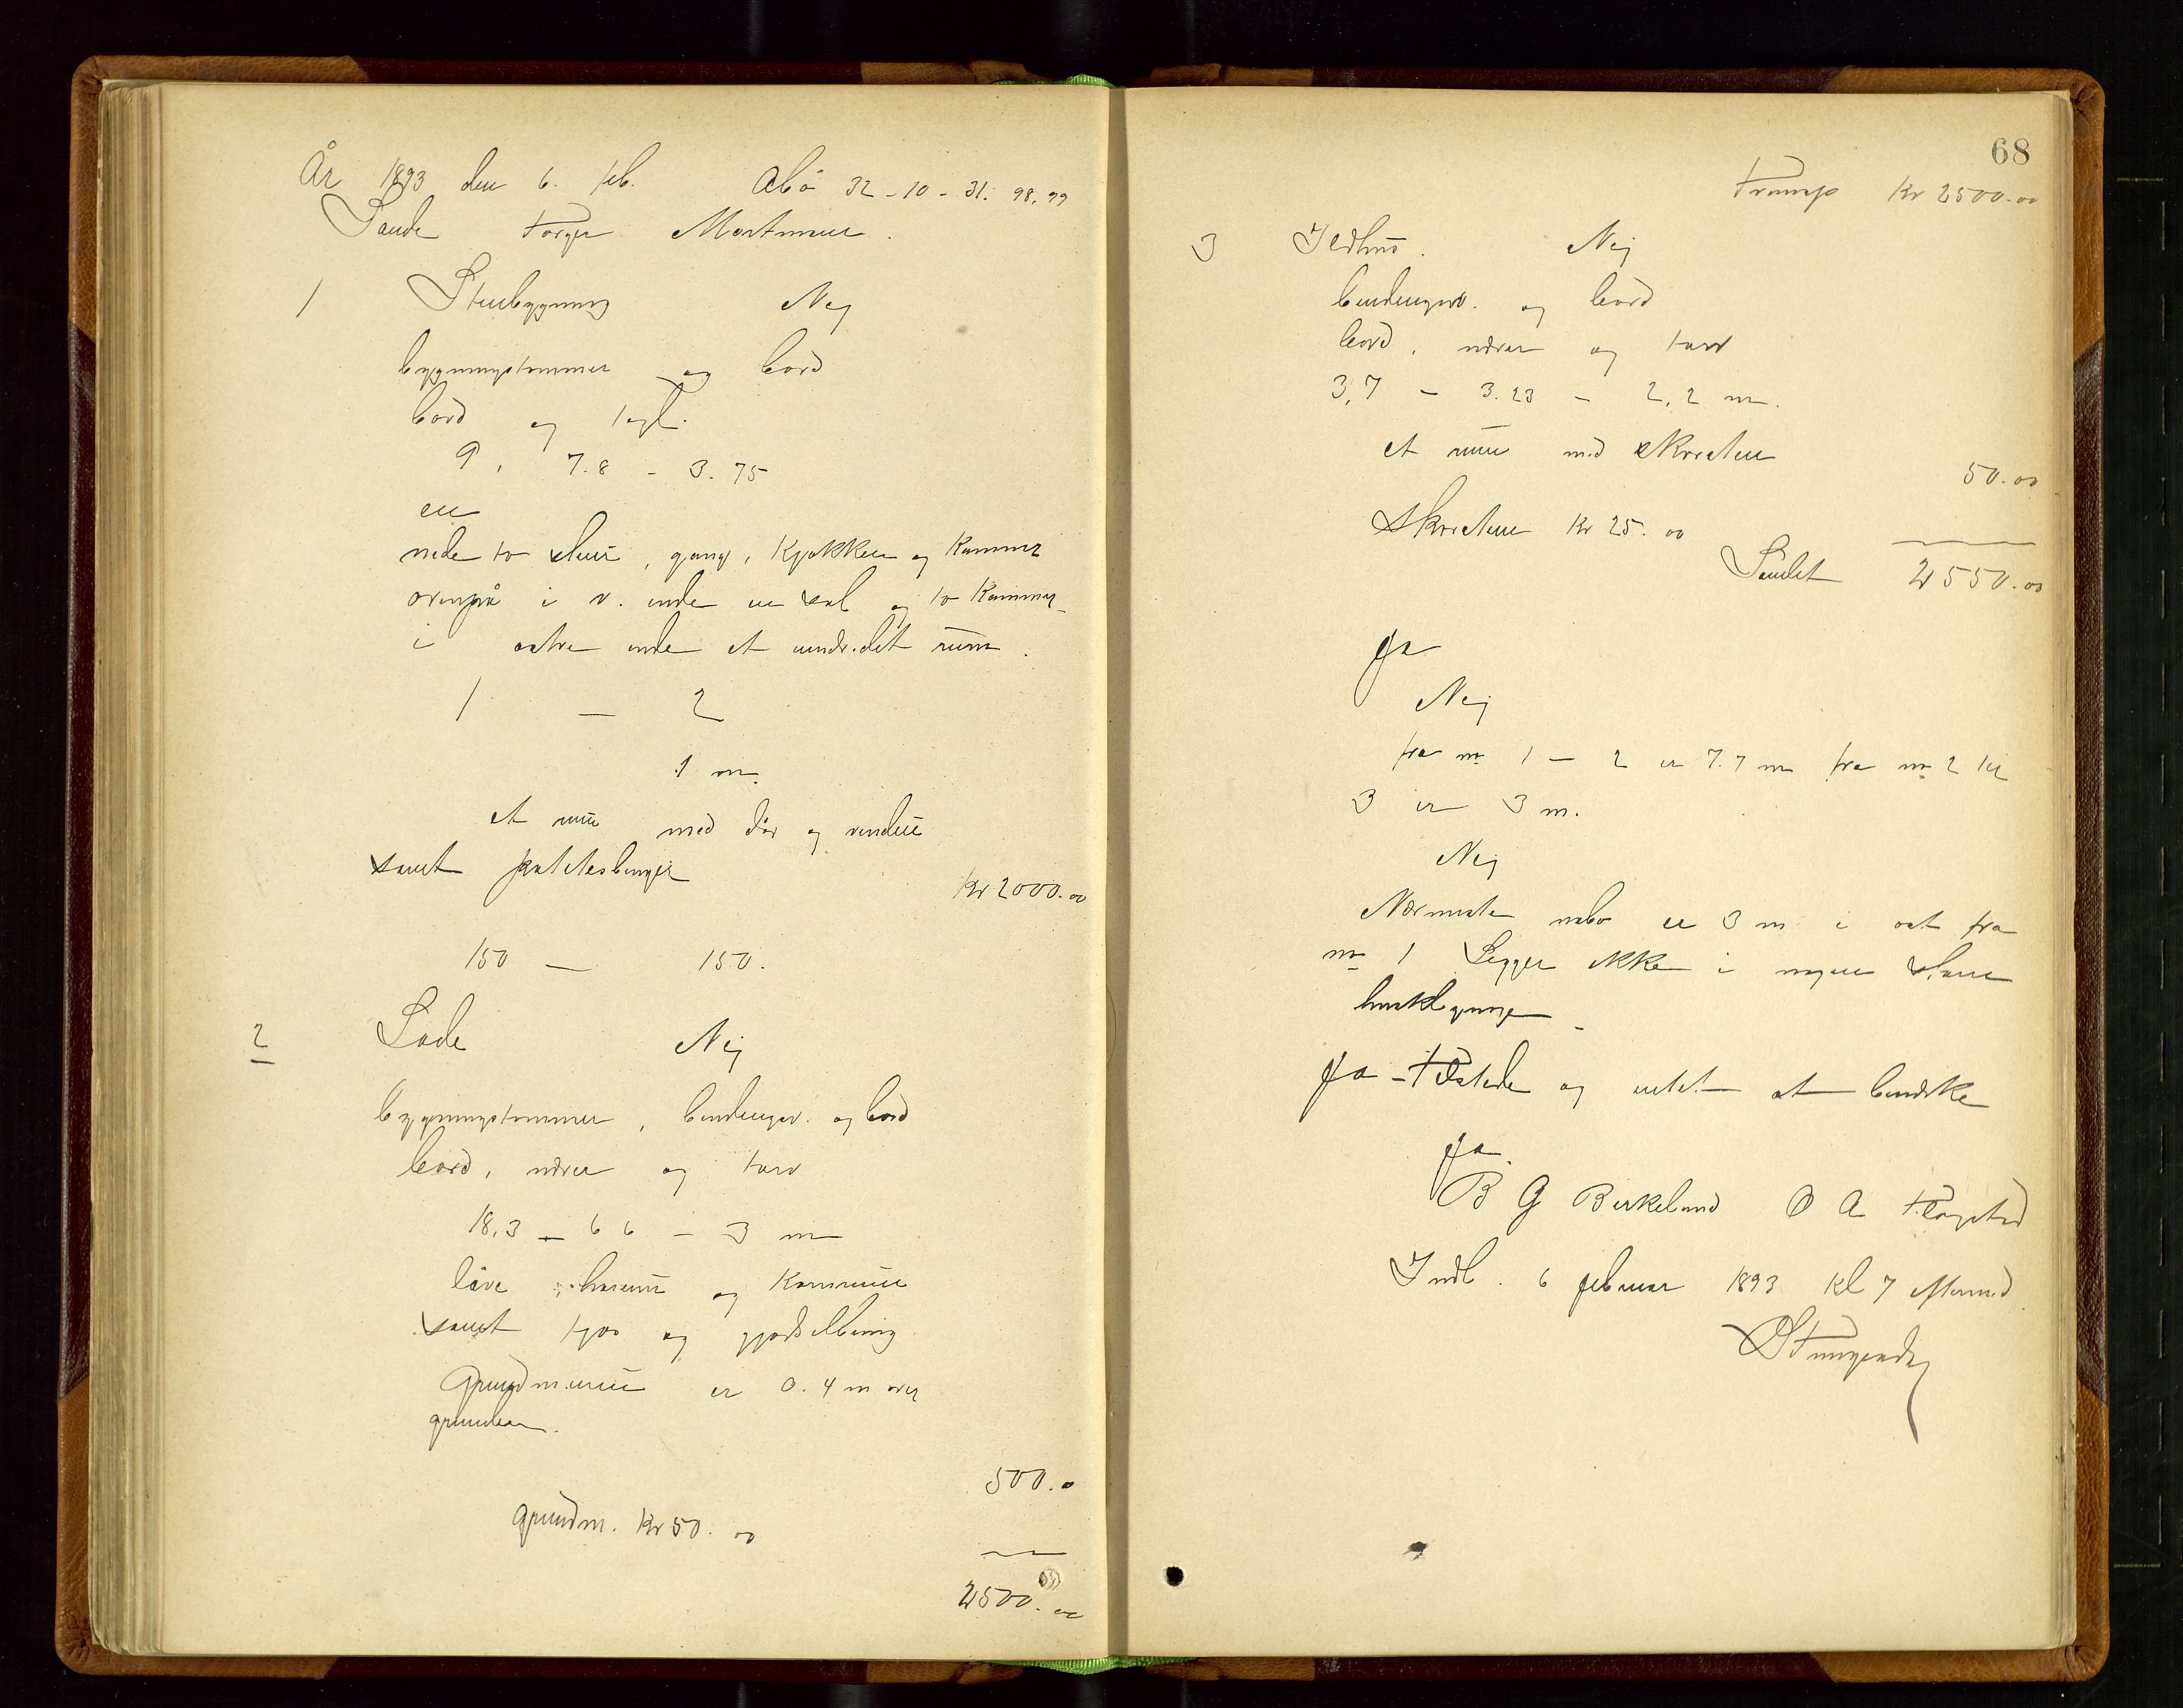 År 1893 den 6. feb. Abö 32-10-31. 98.99
Sande Torger Mortensen.
1 Stuebygning Nej
bygningstømmer og bord
bord og tegl.
9, 7.8 - 3.75
en
nede to stuer, gang, kjøkken og kammer
ovenpå i v. ende en sal og to kammer
i østre ende et uindredet rum.
1 — 2
1 m.
et rum med dør og vindue
samt potetesbinger
Kr 2000.00
150 — 150.
2 Lade Nej
bygningstømmer, bindingsv. og bord
bord, never og torv
18,3 - 6 6 - 3 m
låve og kornrum
samt fjøs og gjødselbing
Grundmuren er 0.4 m over
grunden.
500.0
grundm. Kr 50.00
2500.00
68
Transp Kr 2500.00
3 Ildhus. Nej
bindingsv. og bord
bord, never og torv
3,7 - 3.23 - 2,2 m.
et rum med skorsten
50.00
Skorsten Kr 25.00
Samlet 2550.00
Ja
Nej
fra no 1 - 2 er 7.7 m fra no 2 til
3 er 3 m.
Nej
Nærmeste nabo er 3 m i øst fra
no 1 Ligger ikke i nogen større
husklynge
Ja - Tilstede og intet at bemerke
Ja
B G Birkeland O A Fløgstad
Indl. 6 februar 1893 kl 7 eftermd